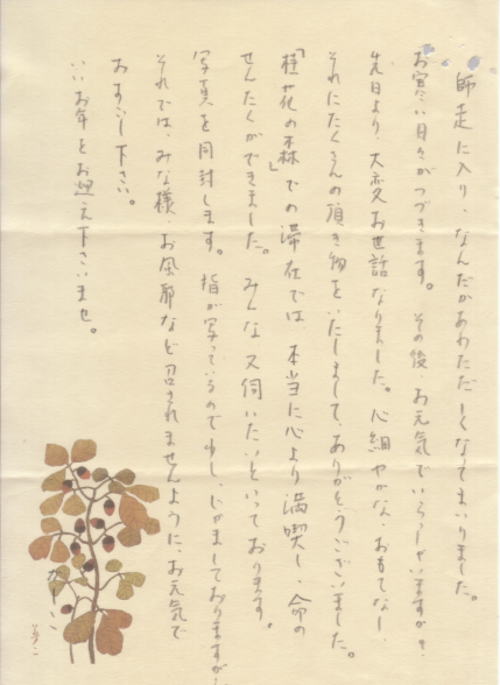 師走に入り、なんだかあわただしくなてまいりました。
お寒い日々がつづきます。その後、お元気でいらっしゃいますか。
先日より、大変お世話なりました。心細やかな、おもてなし、
それにたくさんの頂き物をいたしまして、ありがとうございました。
「桂花の森」での滞在では、本当に心より満喫し、命の
せんたくができました。みんな又伺いたいといっております。
写真を同封します。指が写っているので少し、じゃましておりますが、
それでは、みな様、お風邪など召されませんように、お元気で
おすごし下さい。
いいお年をお迎え下さいませ。